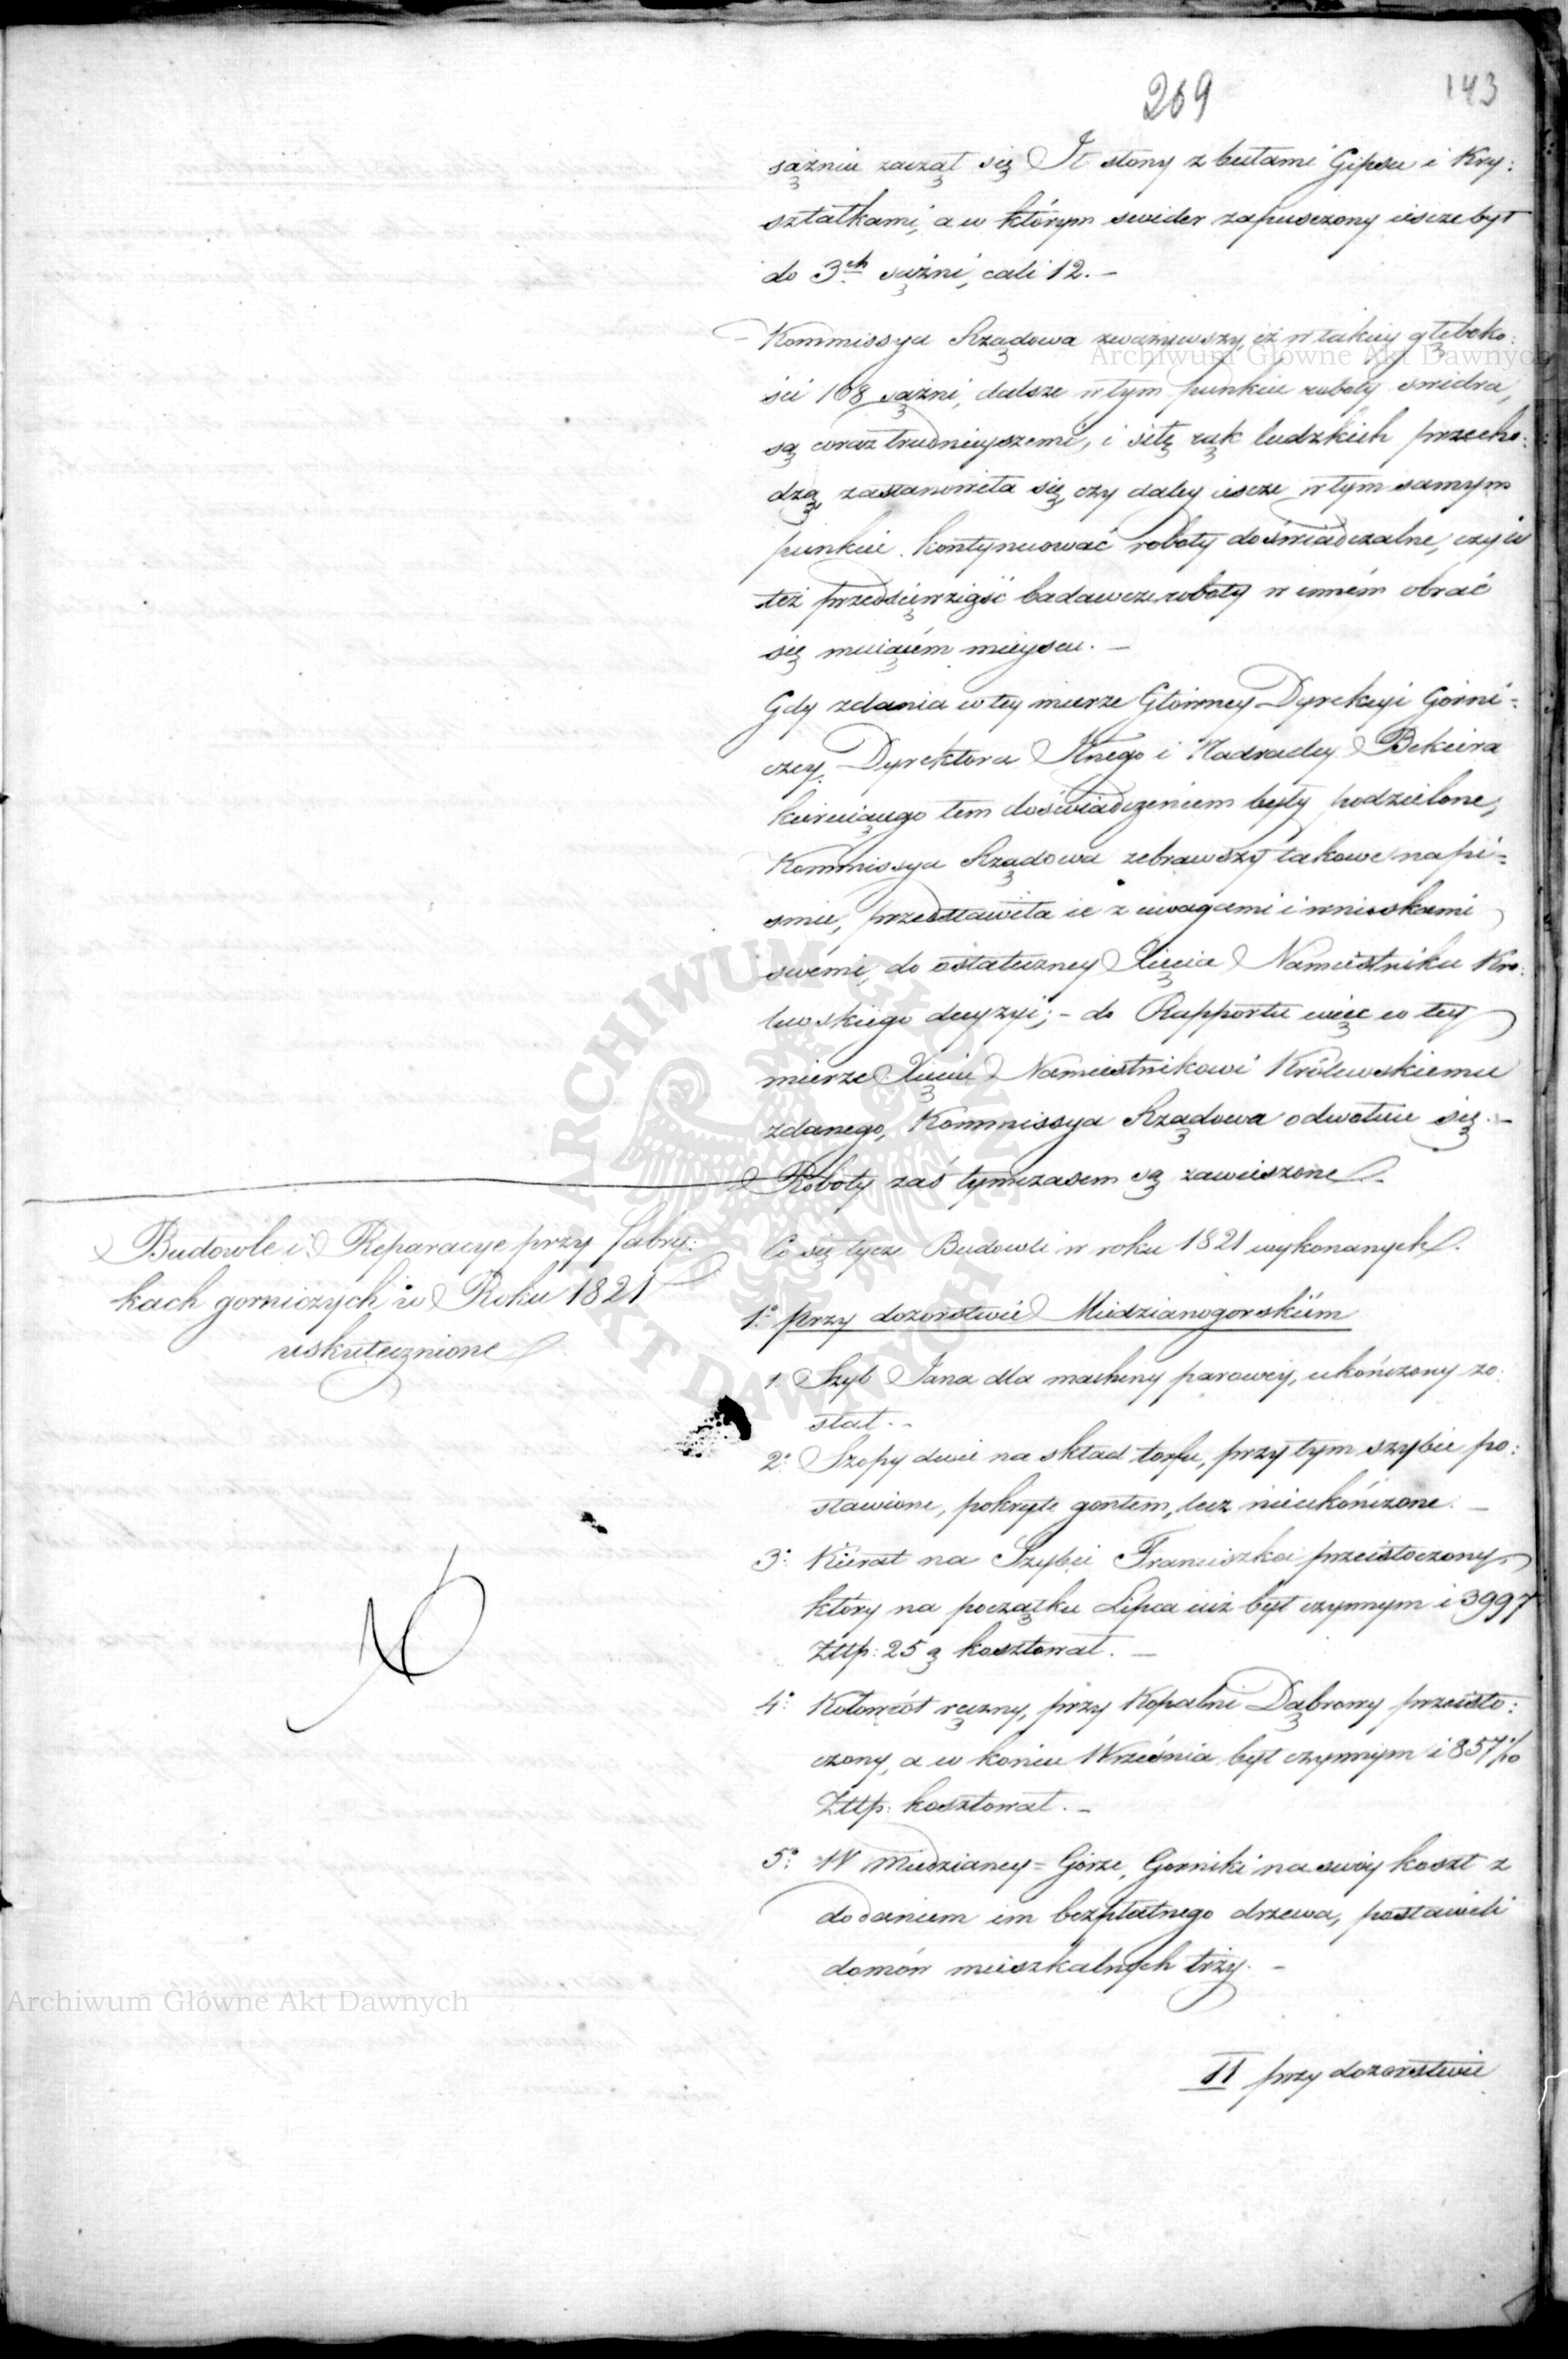 269
143
sążniu zaczął się Ił słony z bułami Gipsu i Kry:
ształkami, a w którym swider zapuszczony iescze był
do 3ch sążni, cali 12. –
– Kommissya Rządowa zważywszy, iż w takiey głęboko:
ści 108 sążni, dalsze w tym punkcie roboty swidra,
są coraz trudnieyszemi, i siłę rąk ludzkich przecho:
dzą, zastanowiła się, czy daley iescze w tym samym
punkcie kontynuować roboty doświadczalne, czyli
też przedsięwziąść badawcze roboty w inném obrać
się maiącém mieyscu. –
Gdy zdania w tey mierze Główney Dyrekcyi Górni=
czey, Dyrektora Jlnego i Nadradcy Bekiera
kieruiącego tem doświadczeniem były podzielone,
Kommissya Rządowa zebrawszy takowe na pi=
smie, przedstawiła ie z uwagami i wnioskami
swémi, do ostateczney Xięcia Namiestnika Kró:
lewskiego decyzyi; – do Rapportu więc w tey
mierze Xięciu Namiestnikowi Królewskiemu
zdanego, Kommissya Rządowa odwołuie się. –
Roboty zaś tymczasem są zawieszone.
Budowle i Reparacye przy fabry:
kach gorniczych w Roku 1821
uskutecznione
Co się tycze Budowli w roku 1821 wykonanych.
1.° przy dozorstwie Miedzianogorskiém
1. Szyb Jana dla machiny parowéy, ukończony zo:
stał. –
2.° Szopy dwie na skład torfu, przy tym szybie po:
stawione, pokryte gontem, lecz nieukończone. –
3.° Kierat na Szybie Franciszka przeistoczony,
który na początku Lipca iuż był czynnym i 3997
Złtp: 25 g kosztował. –
4.° Kołowrót ręczny, przy Kopalni Dąbrowy przeisto:
czony, a w końcu Września był czynnym i 857 1/10
Złtp: kosztował. –
5.° W Miedzianey=Górze, Gorniki na swóy koszt z
dodaniem im bezpłatnego drzewa, postawili
domów mieszkalnych trzy. –
II przy dozorstwie
Archiwum Główne Akt Dawnych
Archiwum Główne Akt Dawnych
ARCHIWUM GŁÓWNE AKT DAWNYCH